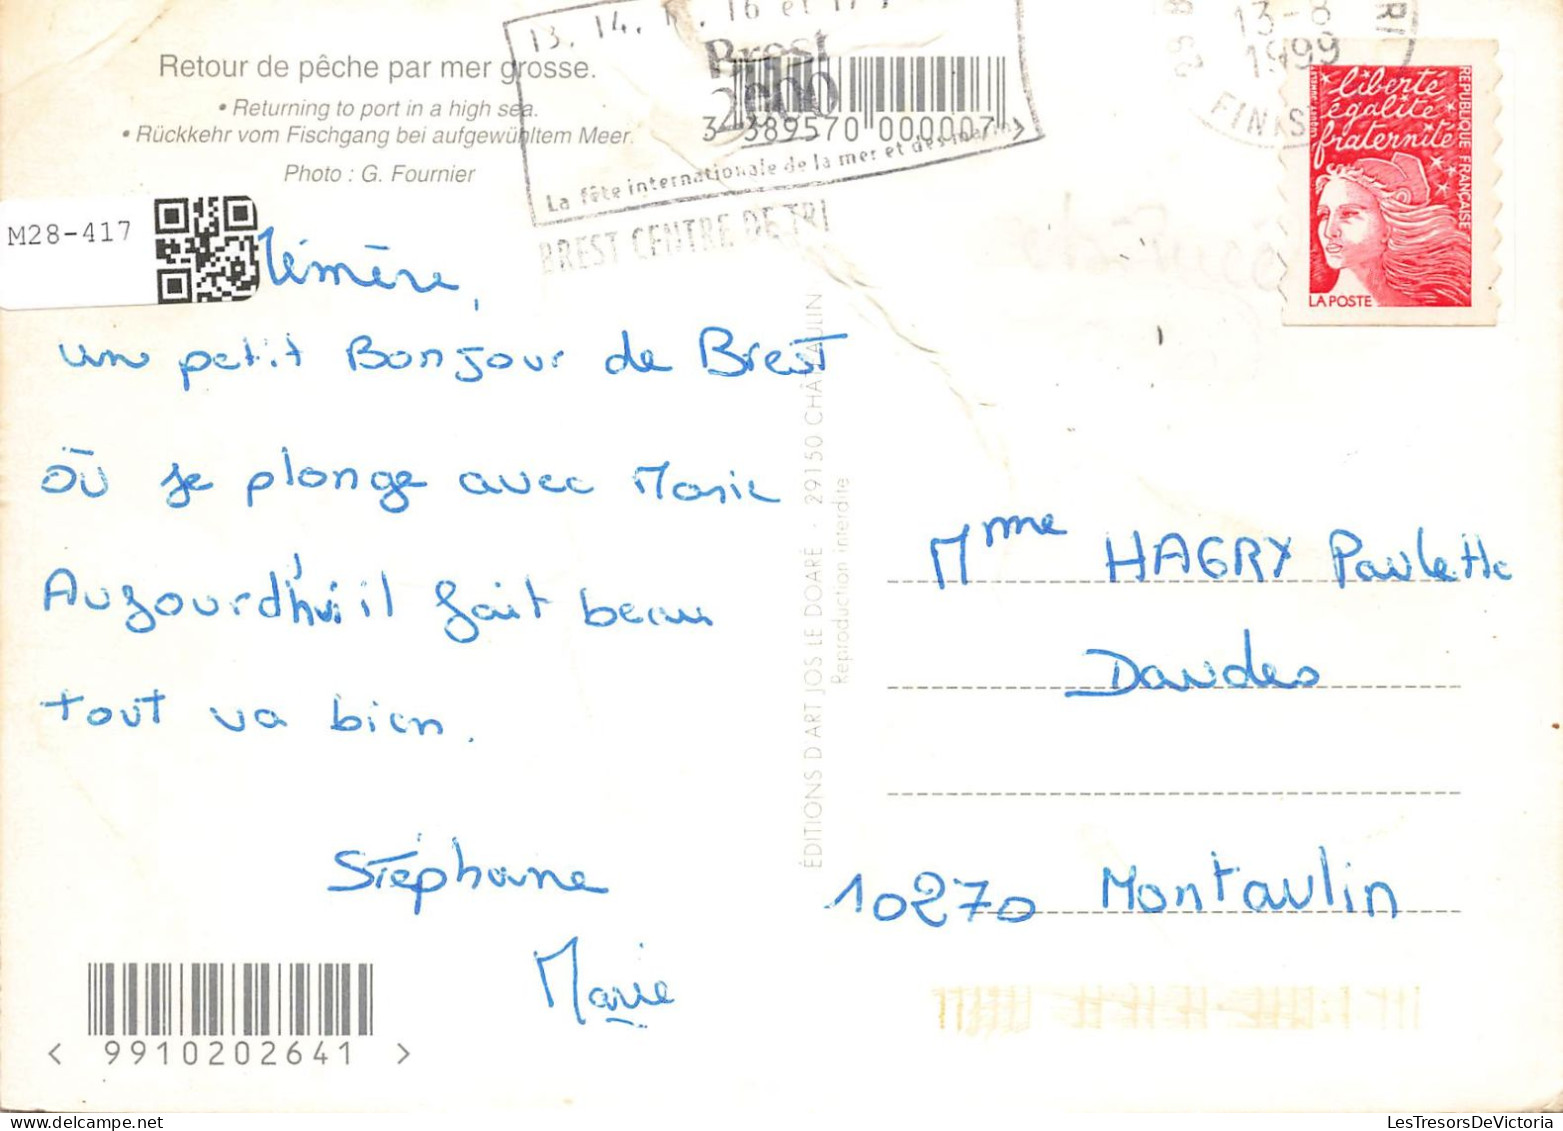 Retour de pêche par mer grosse.
• Returning to port in a high sea.
• Rückkehr vom Fischgang bei aufgewühltem Meer.
Photo : G. Fournier
M28-417
13. 14. 16 et 17
Brest
2000
La fête internationale de la mer et des marins
BREST CENTRE DE TRI
3 389570 000007 >
13-8
1999
FINIS
liberté
égalité
fraternité
RÉPUBLIQUE FRANÇAISE
LA POSTE
Mémère,
un petit Bonjour de Brest
où je plonge avec Marie
Aujourd'hui il fait beau
tout va bien.
Stéphane
Marie
ÉDITIONS D'ART JOS LE DOARÉ - 29150 CHÂTEAULIN
Reproduction interdite
Mme HAGRY Paulette
Daudes
10270 Montaulin
< 9910202641 >
LesTresorsDeVictoria